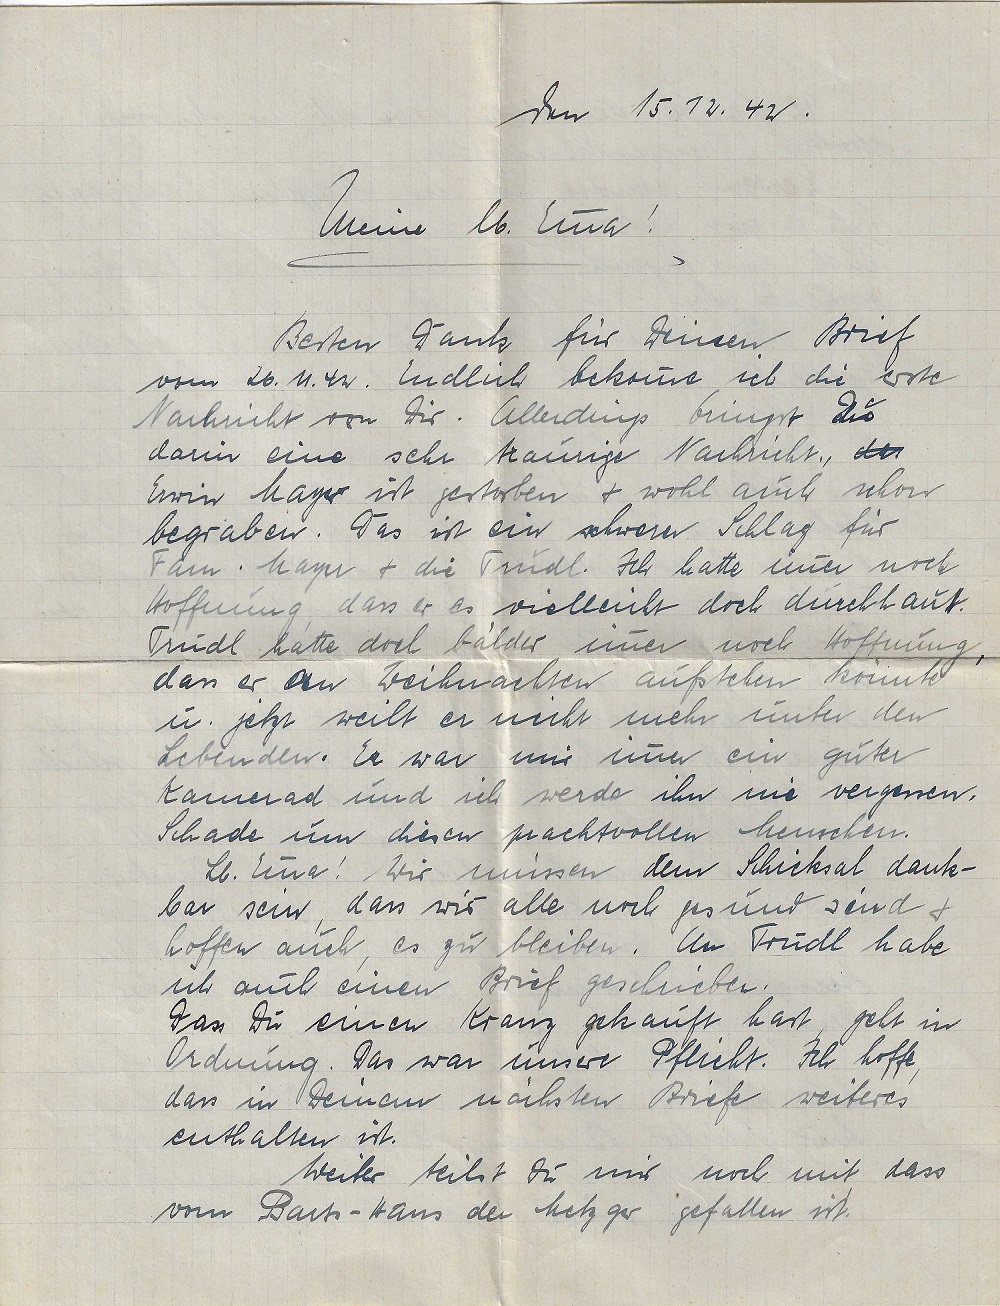 den 15.12.42.
Meine lb. Em̅a!
Besten Dank für Deinen Brief
vom 26.11.42. Endlich bekom̅e ich die erste
Nachricht von Dir. Allerdings bringst Du
darin eine sehr traurige Nachricht.,
Erwin Mayer ist gestorben + wohl auch schon
begraben. Das ist ein schwerer Schlag für
Fam. Mayer + die Trudl. Ich hatte im̅er noch
Hoffnung, dass er es vielleicht doch durchhaut.
Trudl hatte doch im̅er noch Hoffnung,
dass er an Weihnachten aufstehen könnte
u. jetzt weilt er nicht mehr unter den
Lebenden. Er war mir im̅er ein guter
Kamerad und ich werde ihn nie vergessen.
Schade um diesen prachtvollen Menschen.
Lb. Em̅a! Wir müssen dem Schicksal dank-
bar sein, dass wir alle noch gesund sind +
hoffen auch, es zu bleiben. An Trudl habe
ich auch einen Brief geschrieben.
Dass Du einen Kranz gekauft hast, geht in
Ordnung. Das war unsere Pflicht. Ich hoffe,
dass in Deinem nächsten Briefe weiteres
enthalten ist.
Weiter teilst Du mir noch mit, dass
vom -Hans der Metzger gefallen ist.